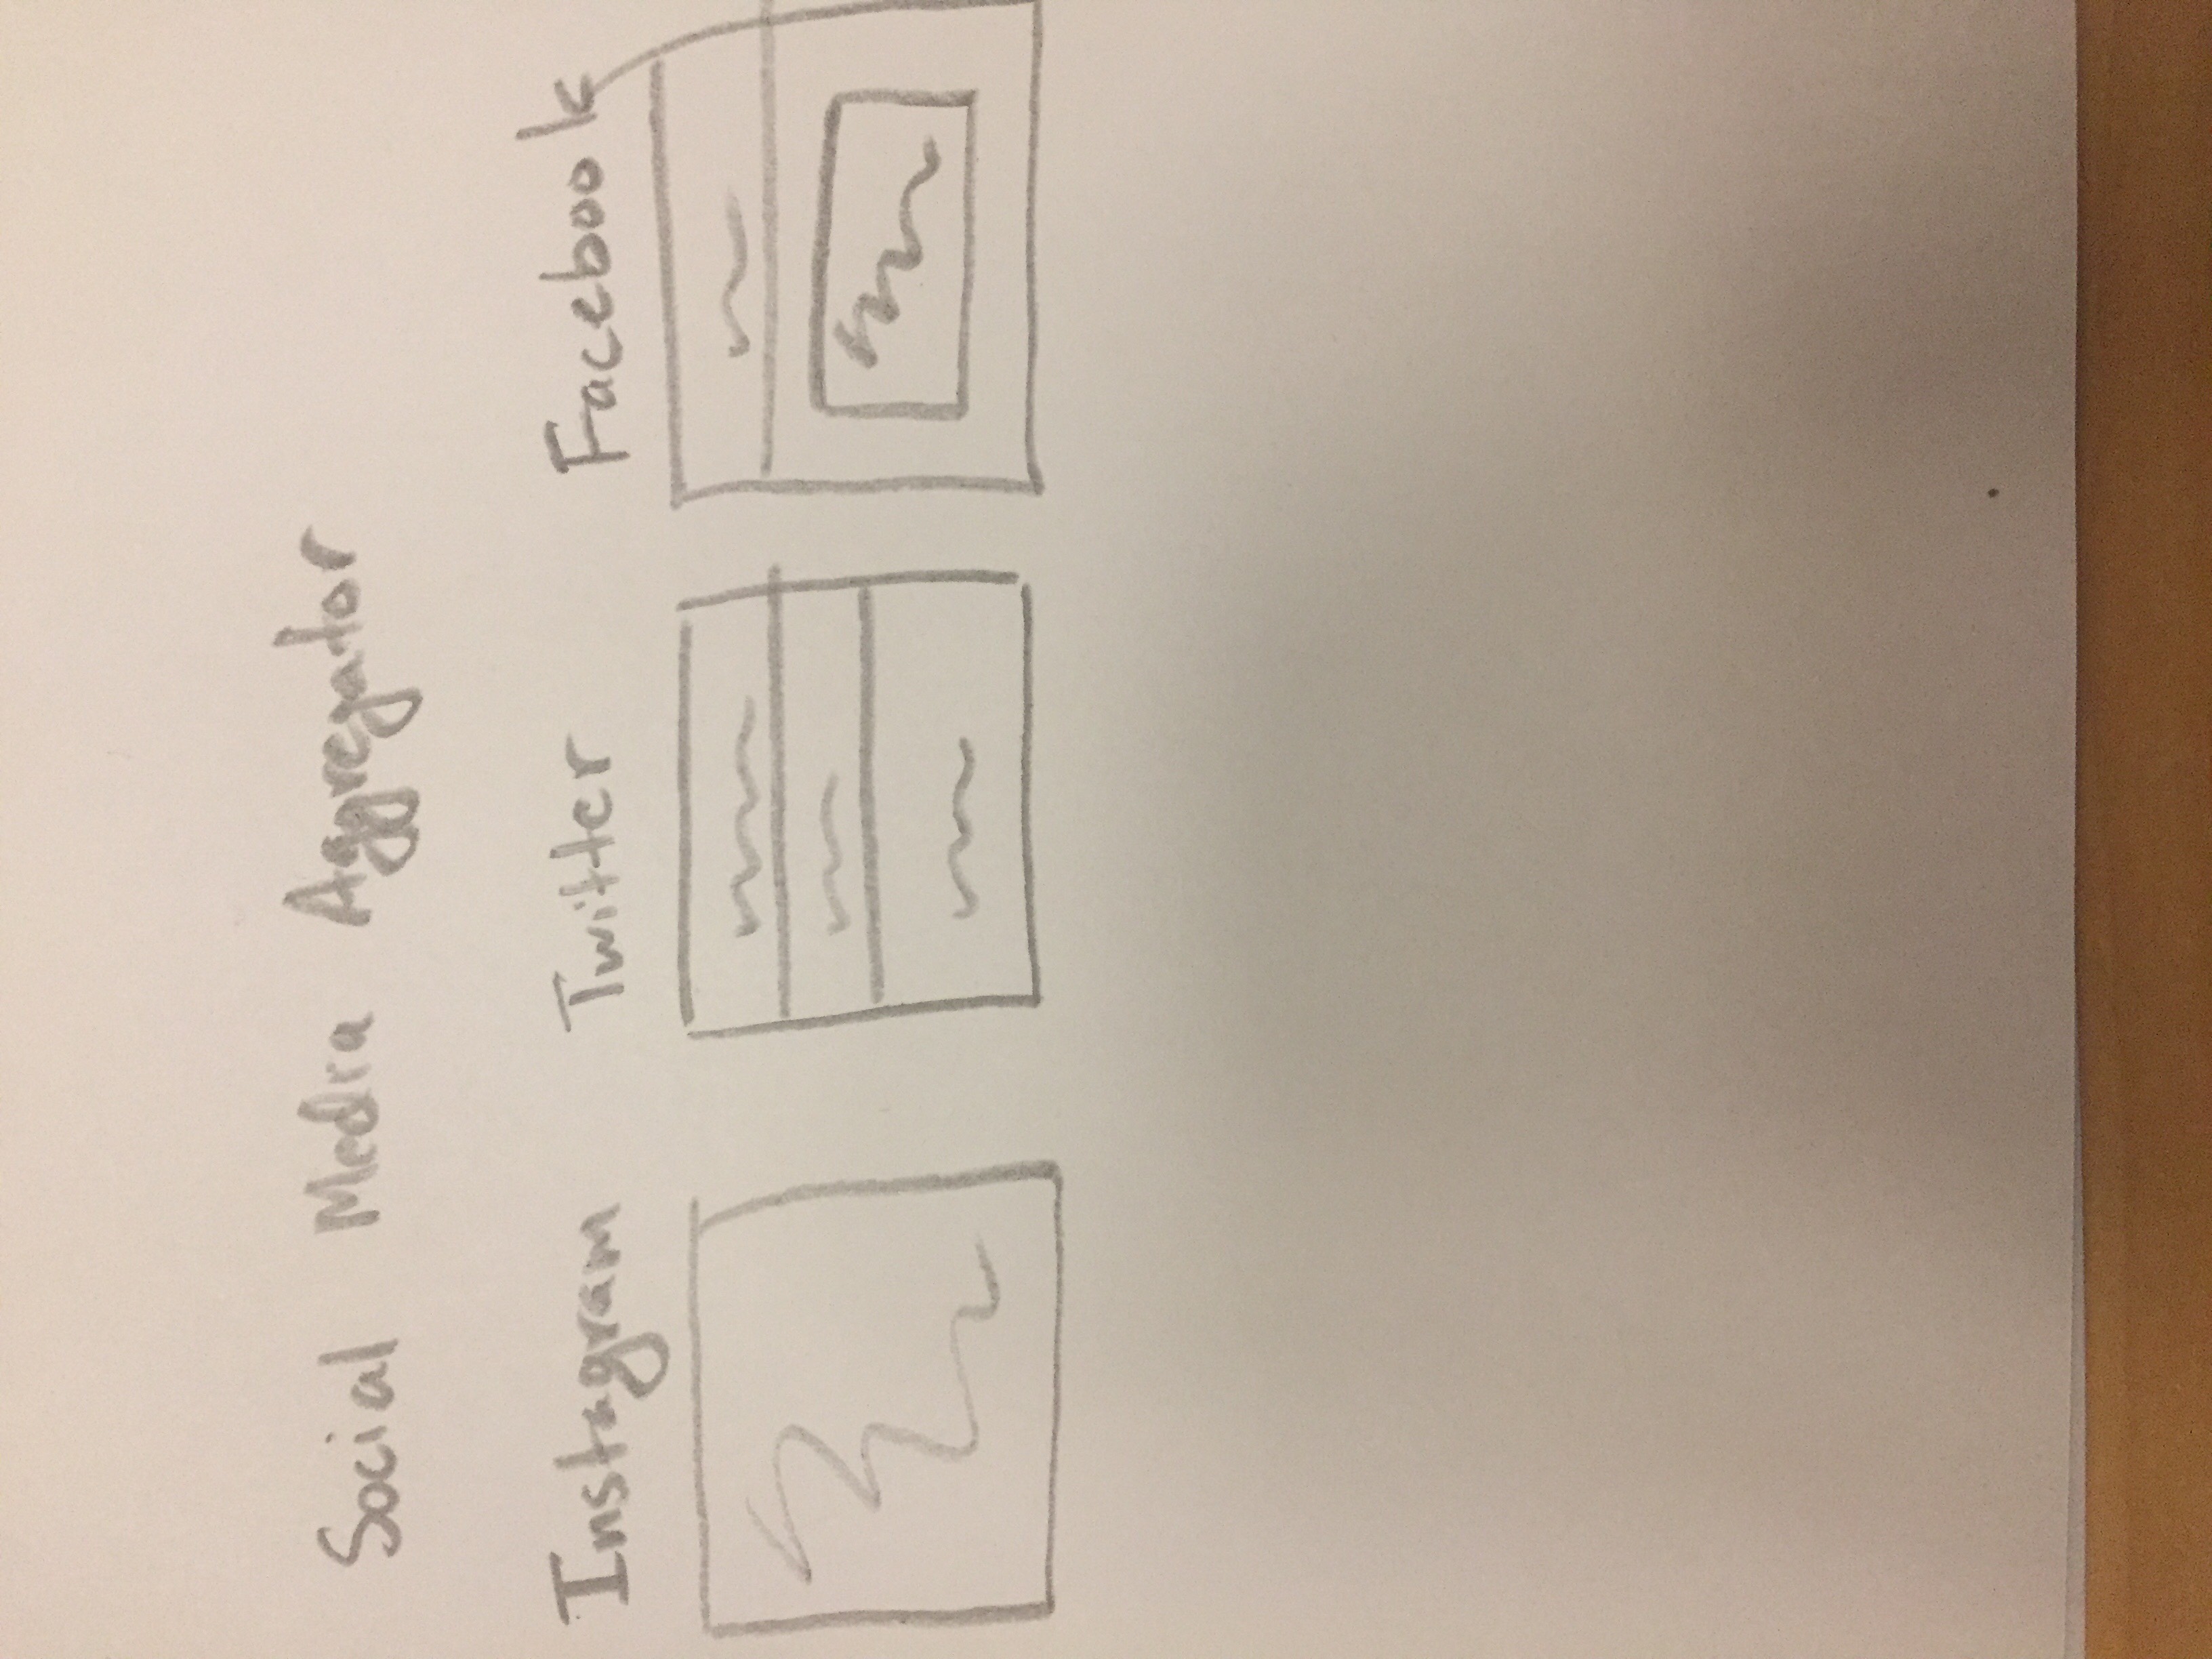 Social Media Aggregator
Instagram Twitter Facebook